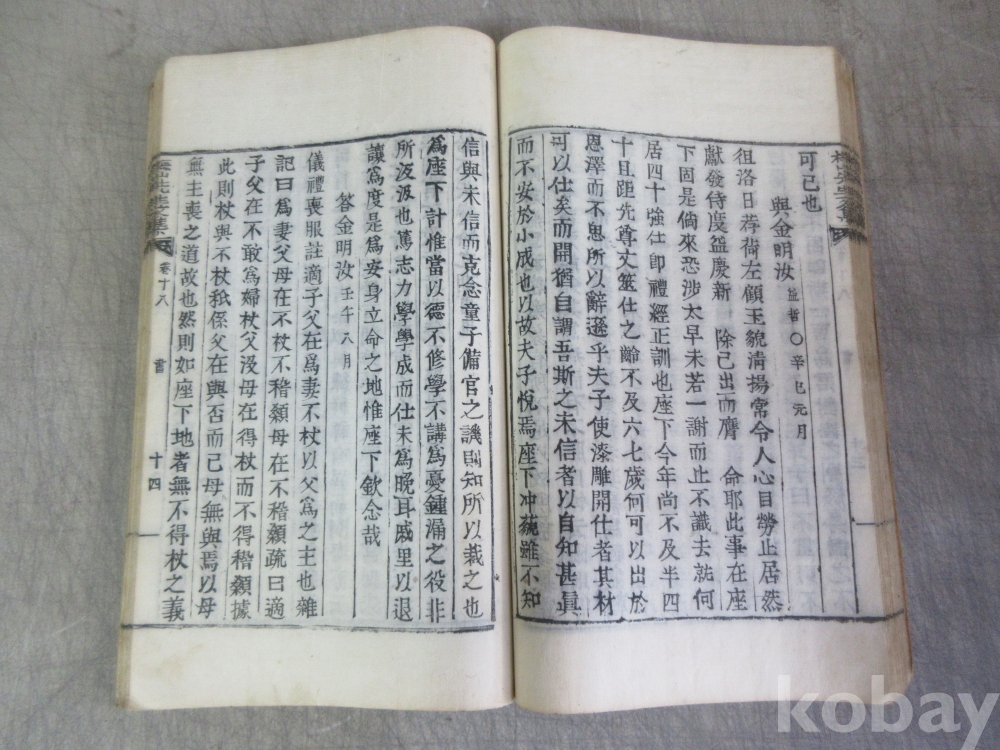 可已也
與金明汝 益哲〇辛巳元月
徂洛日荷左顧玉貌淸揚常令人心目勞止居然
獻發侍度益慶新 除已出而膺 命耶此事在座
下固是倘來恐涉太早未若一謝而止不識去就何
居四十強仕卽禮經正訓也座下今年尚不及半四
十且距先尊丈筮仕之齡不及六七歲何可以出於
恩澤而不思所以辭遜乎夫子使漆雕開仕者其材
可以仕矣而開猶自謂吾斯之未信者以自知甚眞
而不安於小成也以故夫子悅焉座下冲藐雖不知
信與未信而克念童子備官之譏則知所以裁之也
爲座下計惟當以德不修學不講爲憂鍾漏之役非
所汲汲也篤志力學學成而仕未爲晩耳戚里以退
讓爲度是爲安身立命之地惟座下欽念哉
答金明汝 壬午八月
儀禮喪服註適子父在爲妻不杖以父爲之主也雜
記曰爲妻父母在不杖不稽顙母在不稽顙疏曰適
子父在不敢爲婦杖父沒母在得杖而不得稽顙據
此則杖與不杖秖係父在與否而已母無與焉以母
無主喪之道故也然則如座下地者無不得杖之義
卷十八 書 十四
kobay